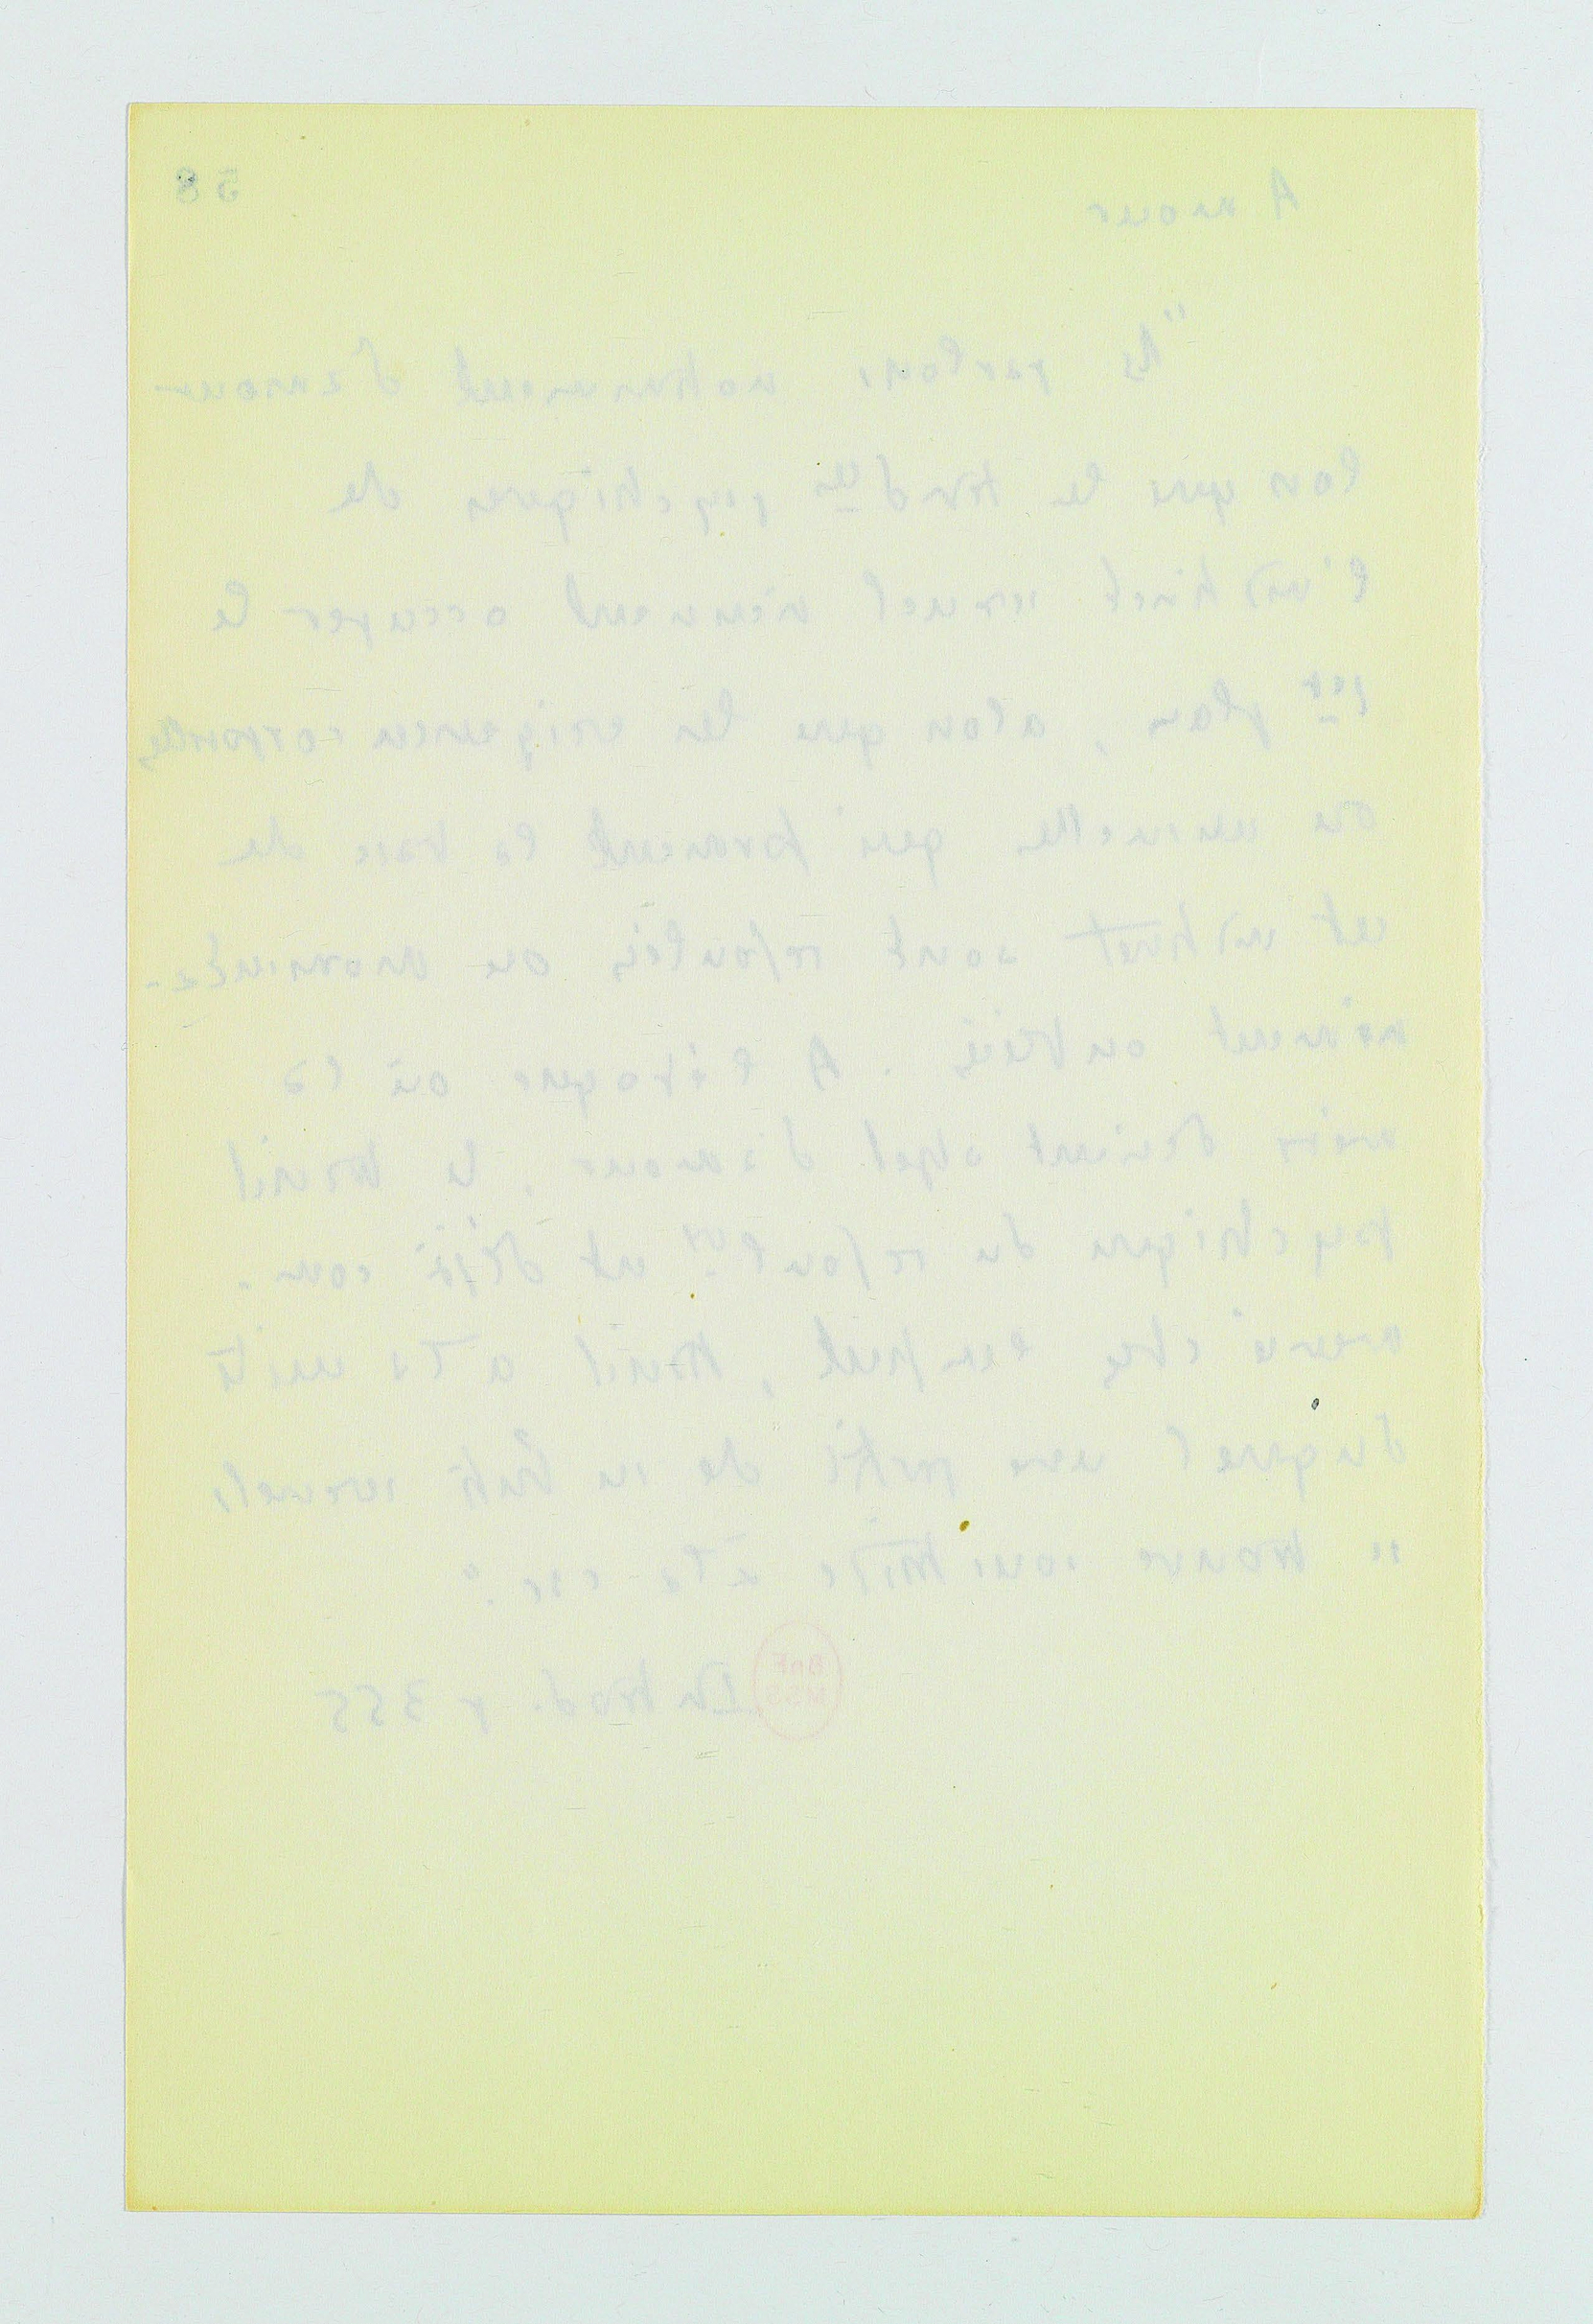 58
Amour
"Ns parlons notamment d'amour
lorsque les tendces psychiques de
l'instinct sexuel viennent occuper le
1er plan, alors que les exigences corporelles
ou sensuelles qui forment la base de
cet instinct sont refoulées ou momenta-
nément oubliées. A l'époque où la
mère devient objet d'amour, le travail
psychique du refoult est déjà com-
mencé chez l'enfant, travail à la suite
duquel une partie de ses buts sexuels
se trouve soustraite à la csc."
BnF
MSS
Introd. p 355